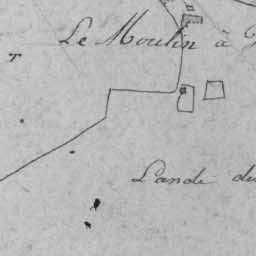 Le Moulin à
Lande du